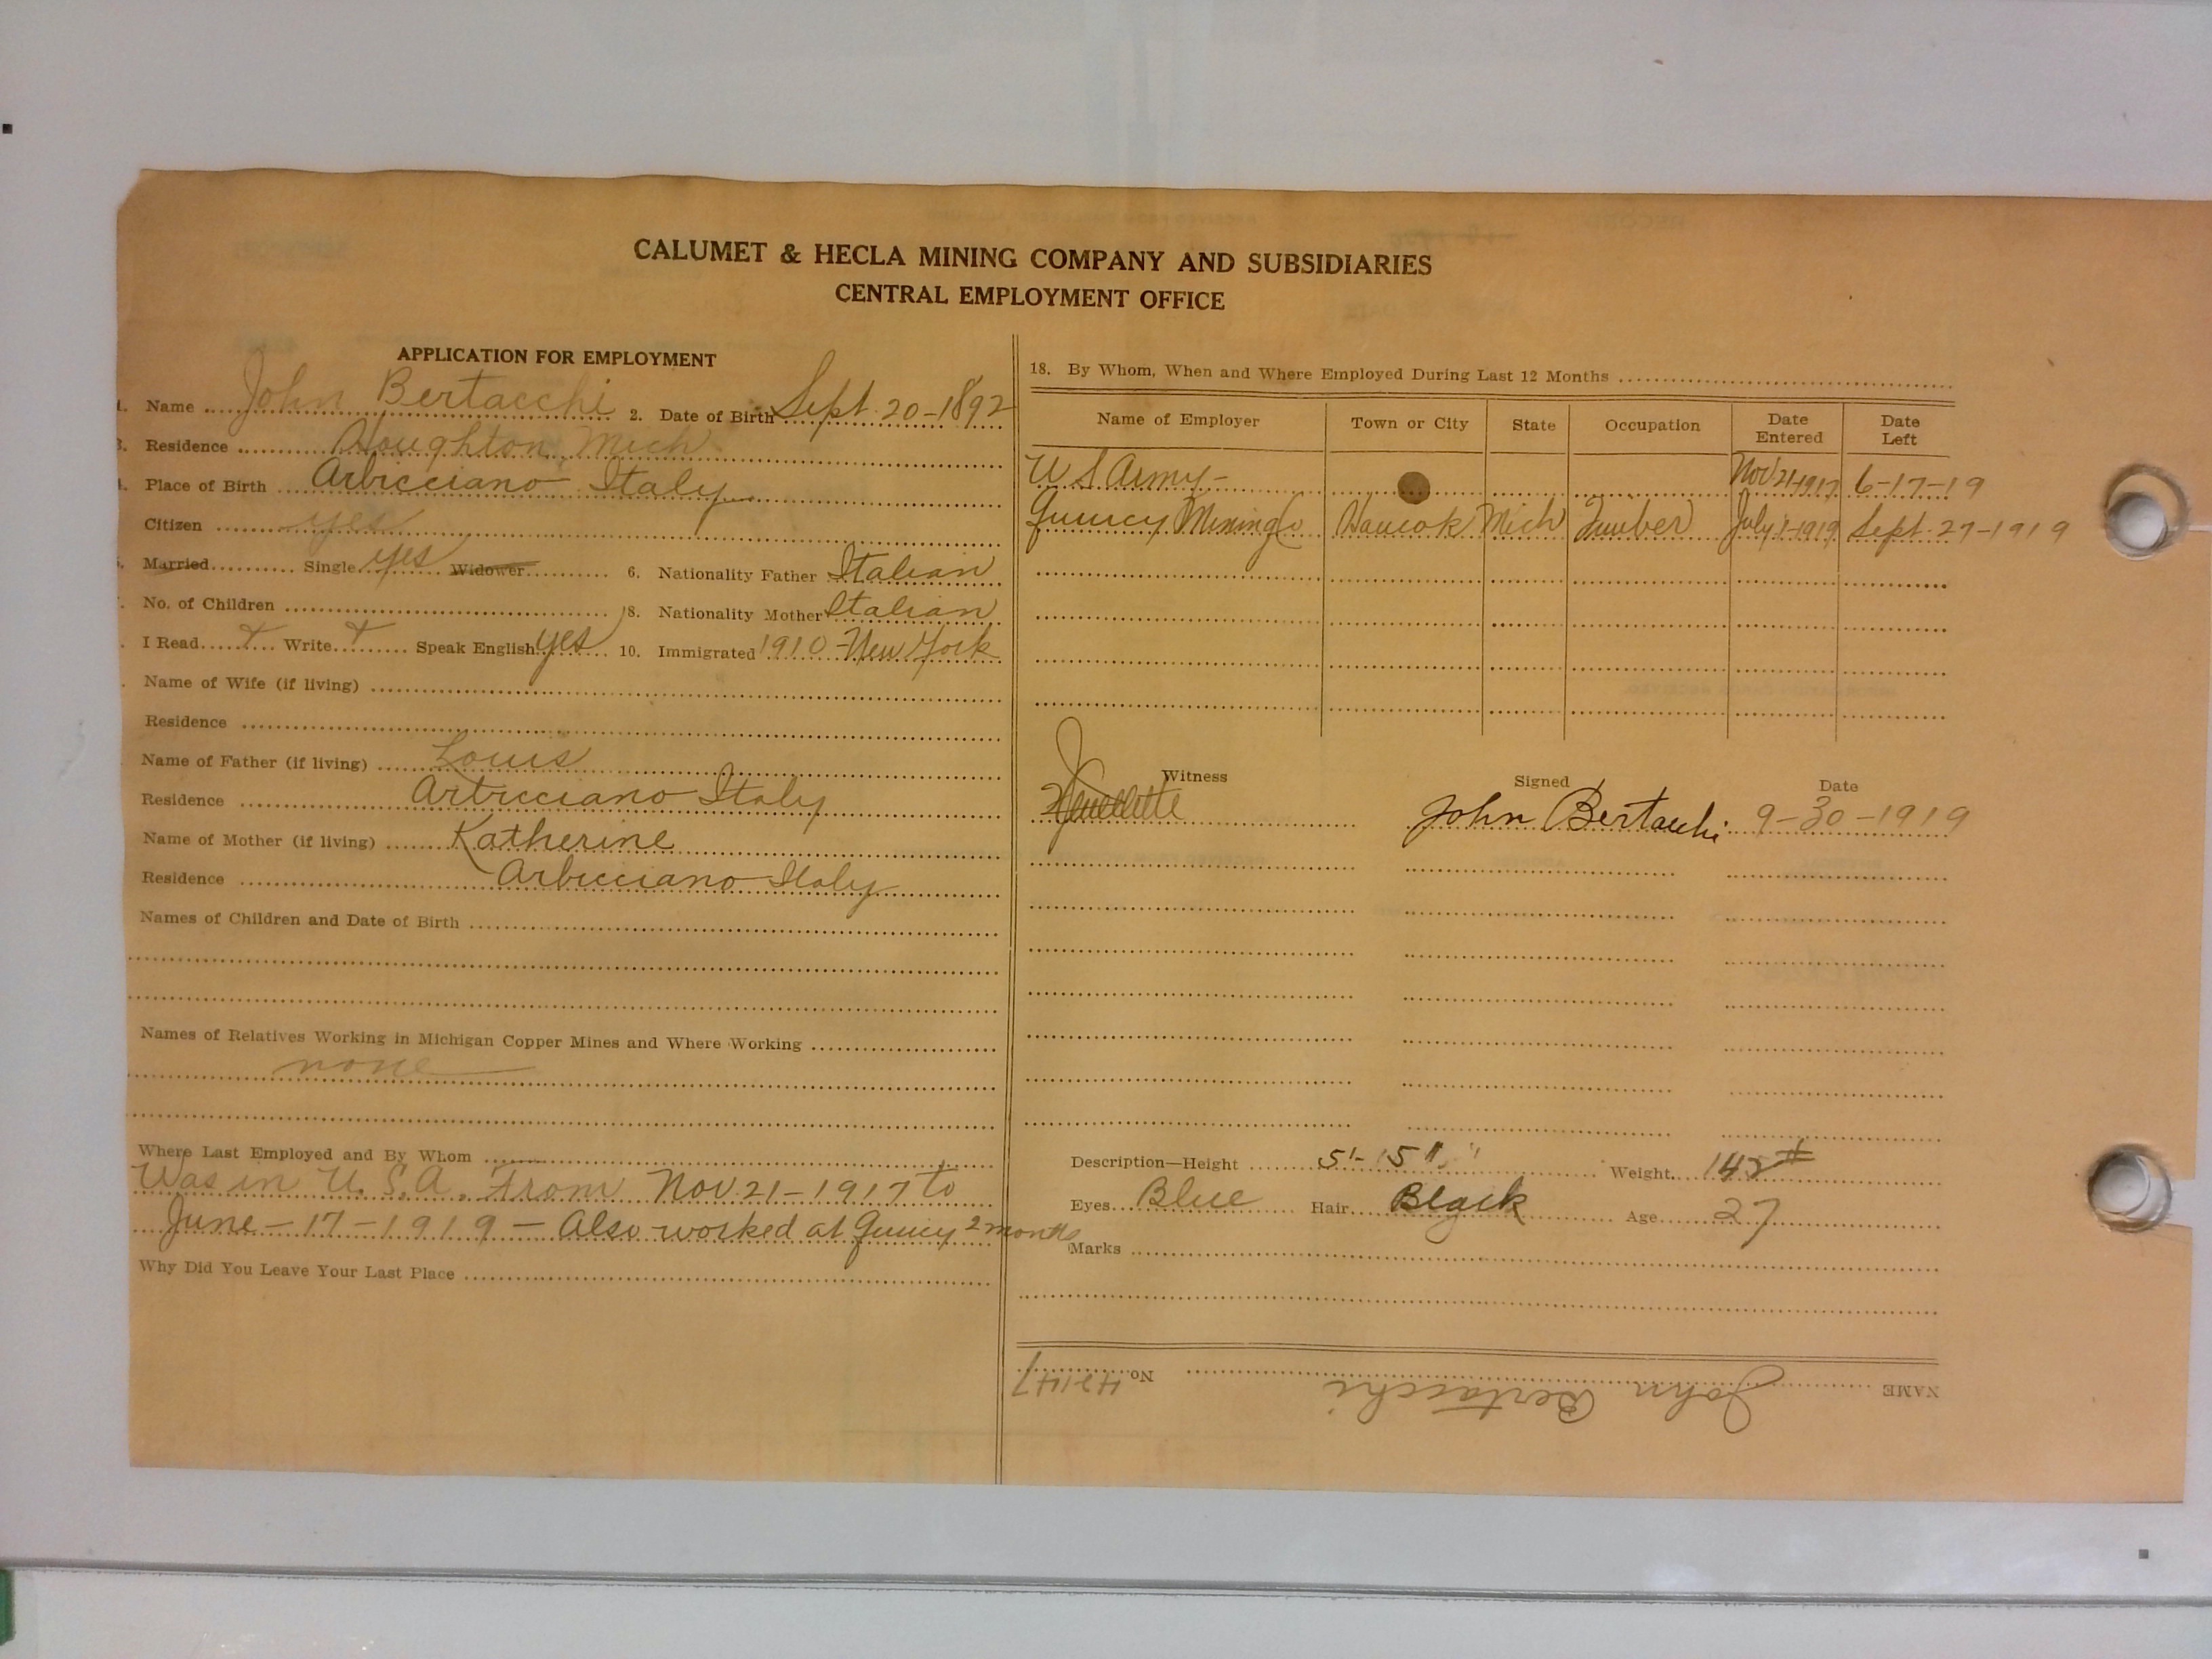 CALUMET & HECLA MINING COMPANY AND SUBSIDIARIES
CENTRAL EMPLOYMENT OFFICE
APPLICATION FOR EMPLOYMENT
1. Name John Bertacchi 2. Date of Birth Sept. 20-1892
3. Residence Houghton, Mich
4. Place of Birth Arbicciano Italy
Citizen yes
5. Married Single yes Widower 6. Nationality Father Italian
No. of Children 8. Nationality Mother Italian
I Read Write Speak English yes 10. Immigrated 1910 - New York
Name of Wife (if living)
Residence
Name of Father (if living) Louis
Residence Arbicciano Italy
Name of Mother (if living) Katherine
Residence Arbicciano Italy
Names of Children and Date of Birth
Names of Relatives Working in Michigan Copper Mines and Where Working
none
Where Last Employed and By Whom
Was in U.S.A. From Nov 21-1917 to
June-17-1919 - Also worked at Quincy 2 months
Why Did You Leave Your Last Place
18. By Whom, When and Where Employed During Last 12 Months
Name of Employer Town or City State Occupation Date Entered Date Left
U S Army - Nov 21-1917 6-17-19
Quincy Mining Co Hancok Mich July 1-1919 Sept. 27-1919
Witness Signed Date
John Bertacchi 9-30-1919
Description—Height 5'-5" Weight 142#
Eyes Blue Hair Black Age 27
Marks
NAME John Bertacchi No. 42147